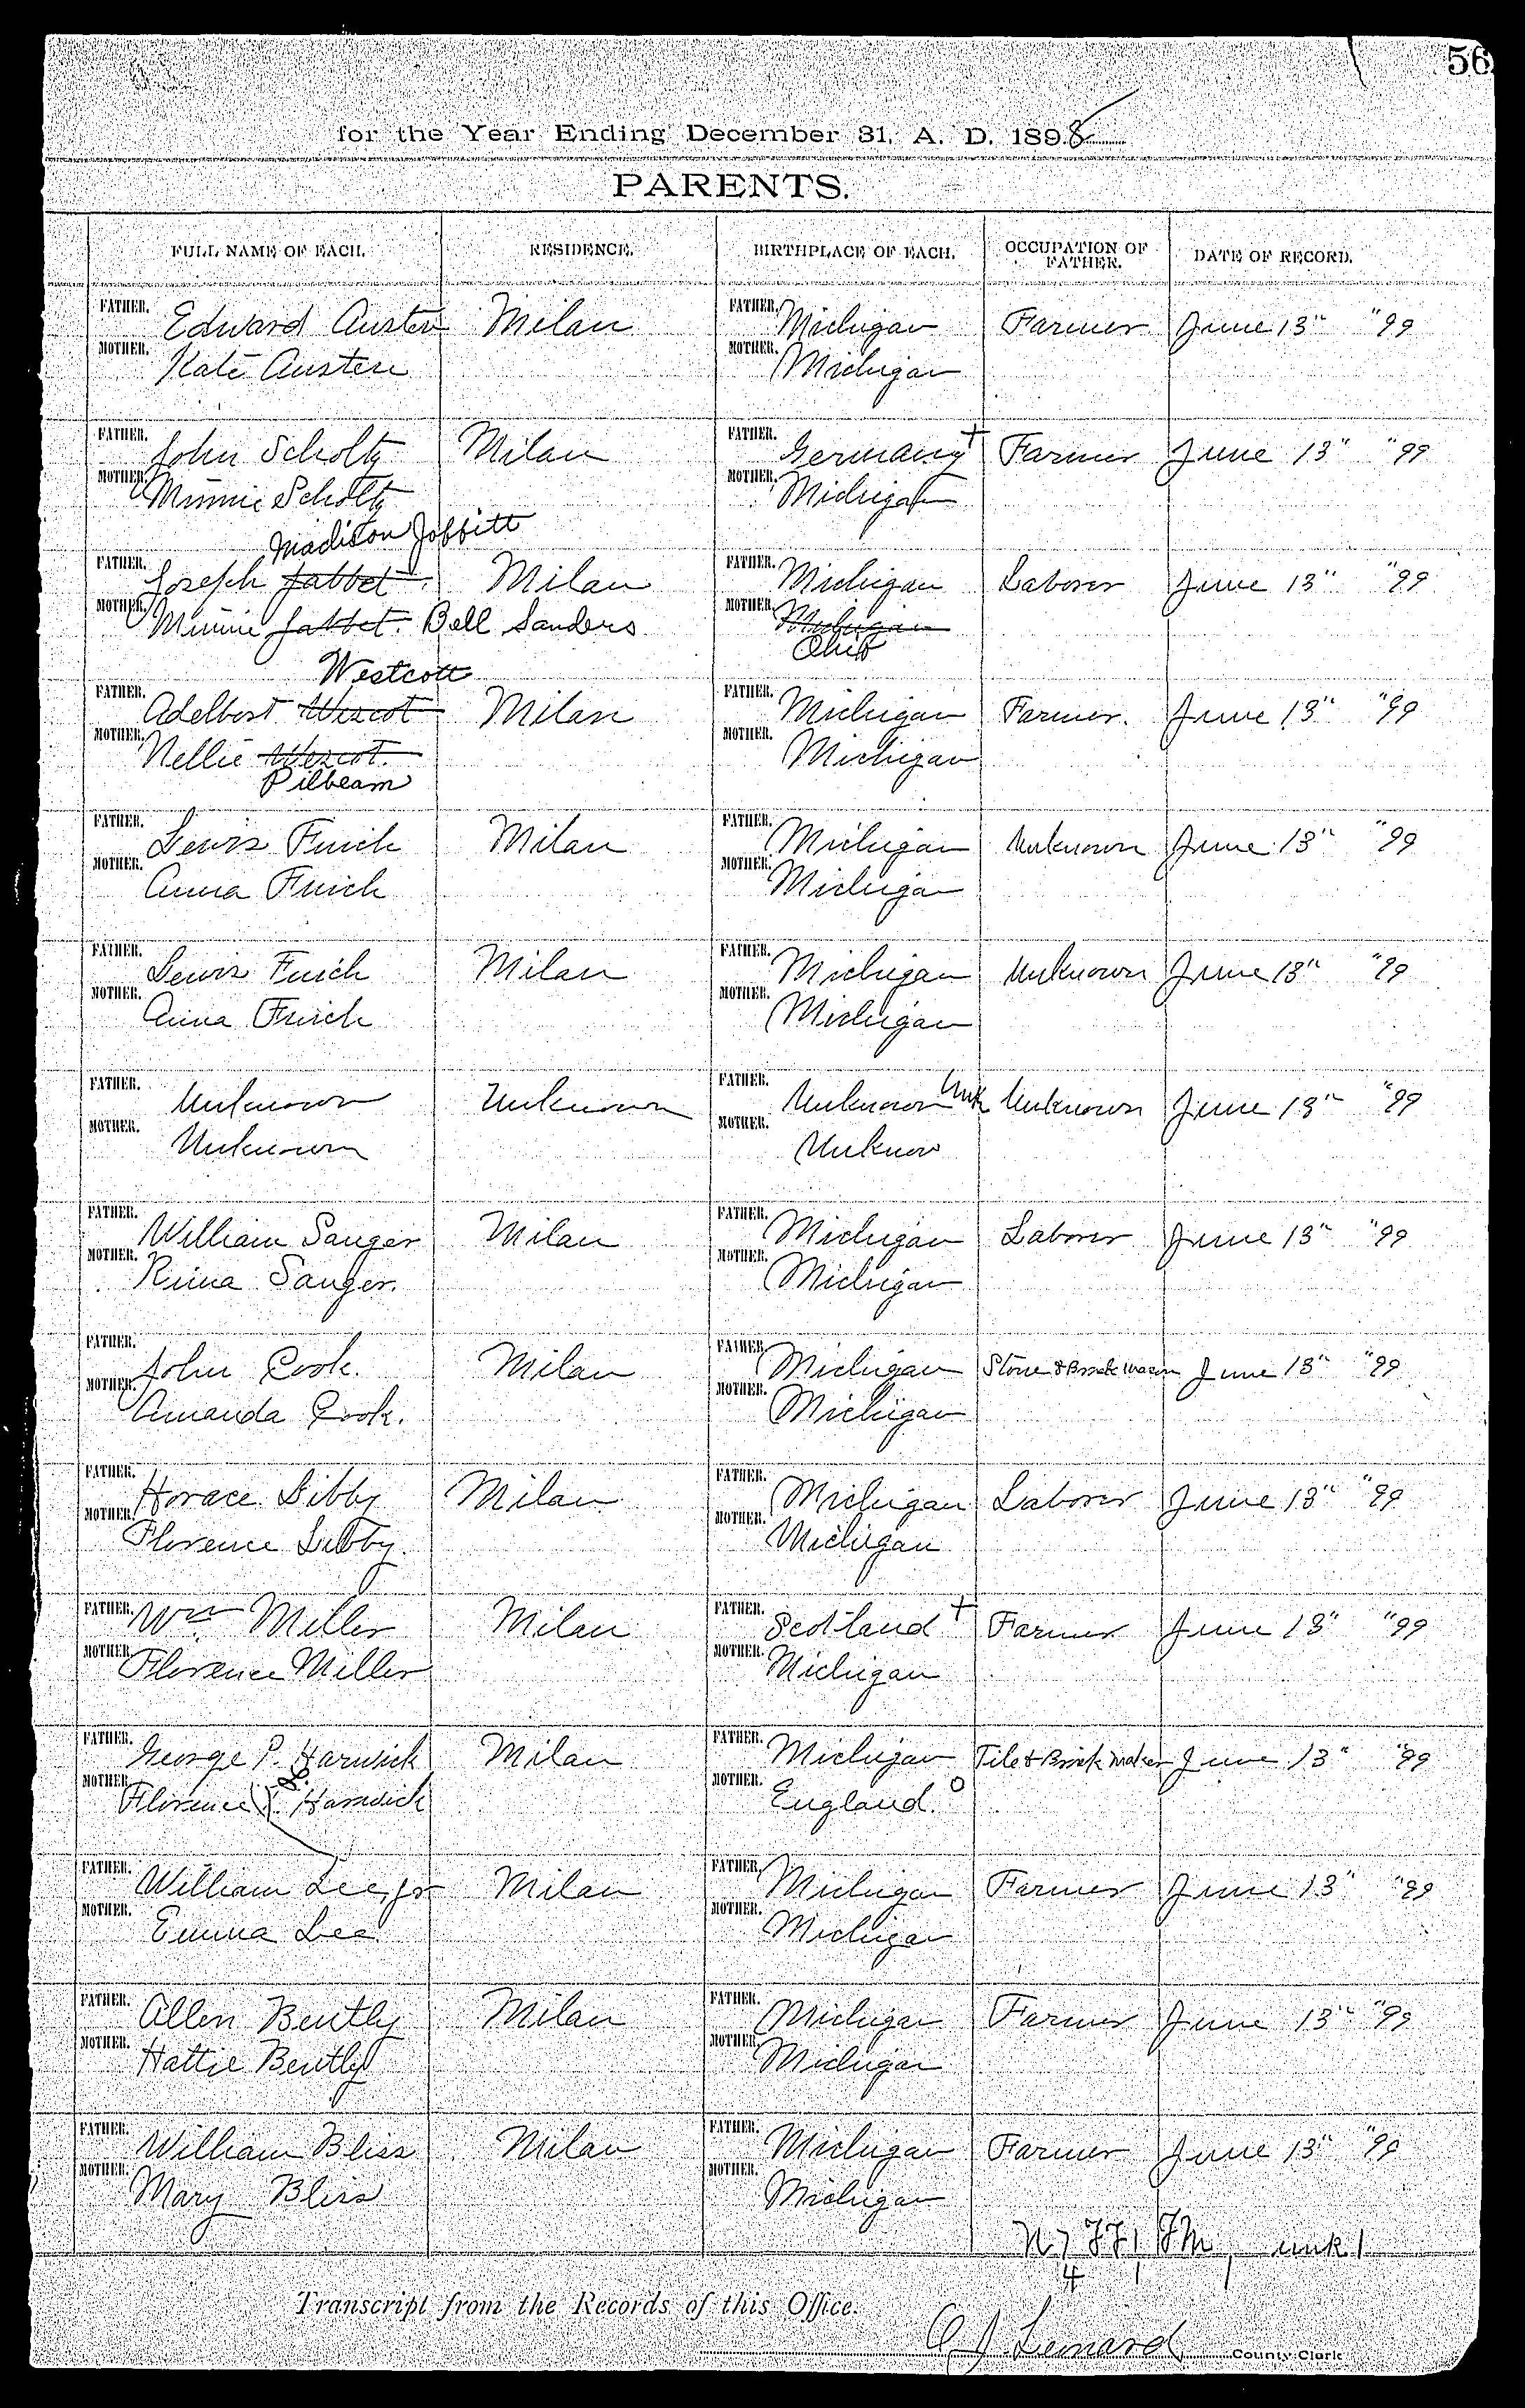 56
for the Year Ending December 31, A. D. 1898
PARENTS.
FULL NAME OF EACH. RESIDENCE. BIRTHPLACE OF EACH. OCCUPATION OF FATHER. DATE OF RECORD.
FATHER. Edward Austen Milan FATHER. Michigan Farmer June 13" "99
MOTHER. Kate Austen MOTHER. Michigan
FATHER. John Scholtz Milan FATHER. Germany + Farmer June 13" "99
MOTHER. Minnie Scholtz MOTHER. Michigan
Madison Jobbitt
FATHER. Joseph Jabbet Milan FATHER. Michigan Laborer June 13" "99
MOTHER. Minnie Jabbet. Bell Sanders MOTHER. Michigan
Ohio
Westcott
FATHER. Adelbert Wescot Milan FATHER. Michigan Farmer. June 13" "99
MOTHER. Nellie Wescot. MOTHER. Michigan
Pilbeam
FATHER. Lewis Finch Milan FATHER. Michigan Unknown June 13" "99
MOTHER. Anna Finch MOTHER. Michigan
FATHER. Lewis Finch Milan FATHER. Michigan Unknown June 13" "99
MOTHER. Anna Finch MOTHER. Michigan
FATHER. Unknown Unknown FATHER. Unknown Unk Unknown June 13" "99
MOTHER. Unknown MOTHER. Unknow
FATHER. William Sanger Milan FATHER. Michigan Laborer June 13" "99
MOTHER. Rina Sanger. MOTHER. Michigan
FATHER. John Cook. Milan FATHER. Michigan Stone & Brick mason June 13" "99
MOTHER. Amanda Cook. MOTHER. Michigan
FATHER. Horace Libby Milan FATHER. Michigan Laborer June 13" "99
MOTHER. Florence Libby. MOTHER. Michigan
FATHER. Wm. Miller Milan FATHER. Scotland + Farmer June 13" "99
MOTHER. Florence Miller MOTHER. Michigan
FATHER. George P. Harwick Milan FATHER. Michigan Tile & Brick maker June 13" "99
MOTHER. Florence L. Harwick MOTHER. England. o
FATHER. William Lee, Jr Milan FATHER. Michigan Farmer June 13" "99
MOTHER. Emma Lee MOTHER. Michigan
FATHER. Allen Bently Milan FATHER. Michigan Farmer June 13" "99
MOTHER. Hattie Bently MOTHER. Michigan
FATHER. William Bliss Milan FATHER. Michigan Farmer June 13" "99
MOTHER. Mary Bliss MOTHER. Michigan
FM unk 1
Transcript from the Records of this Office.
Lenard County Clerk